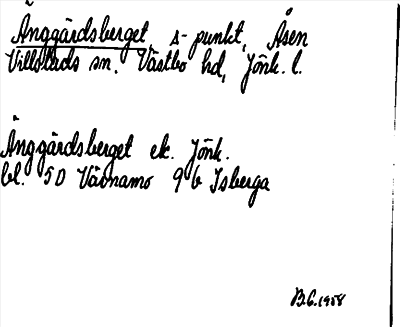 Änggärdsberget, s-punkt, Åsen
Villstads sn. Västbo hd, Jönk. l.
Änggärdsberget ek. Jönk.
bl. 5D Värnamo 9 b Isberga
B.G. 1958